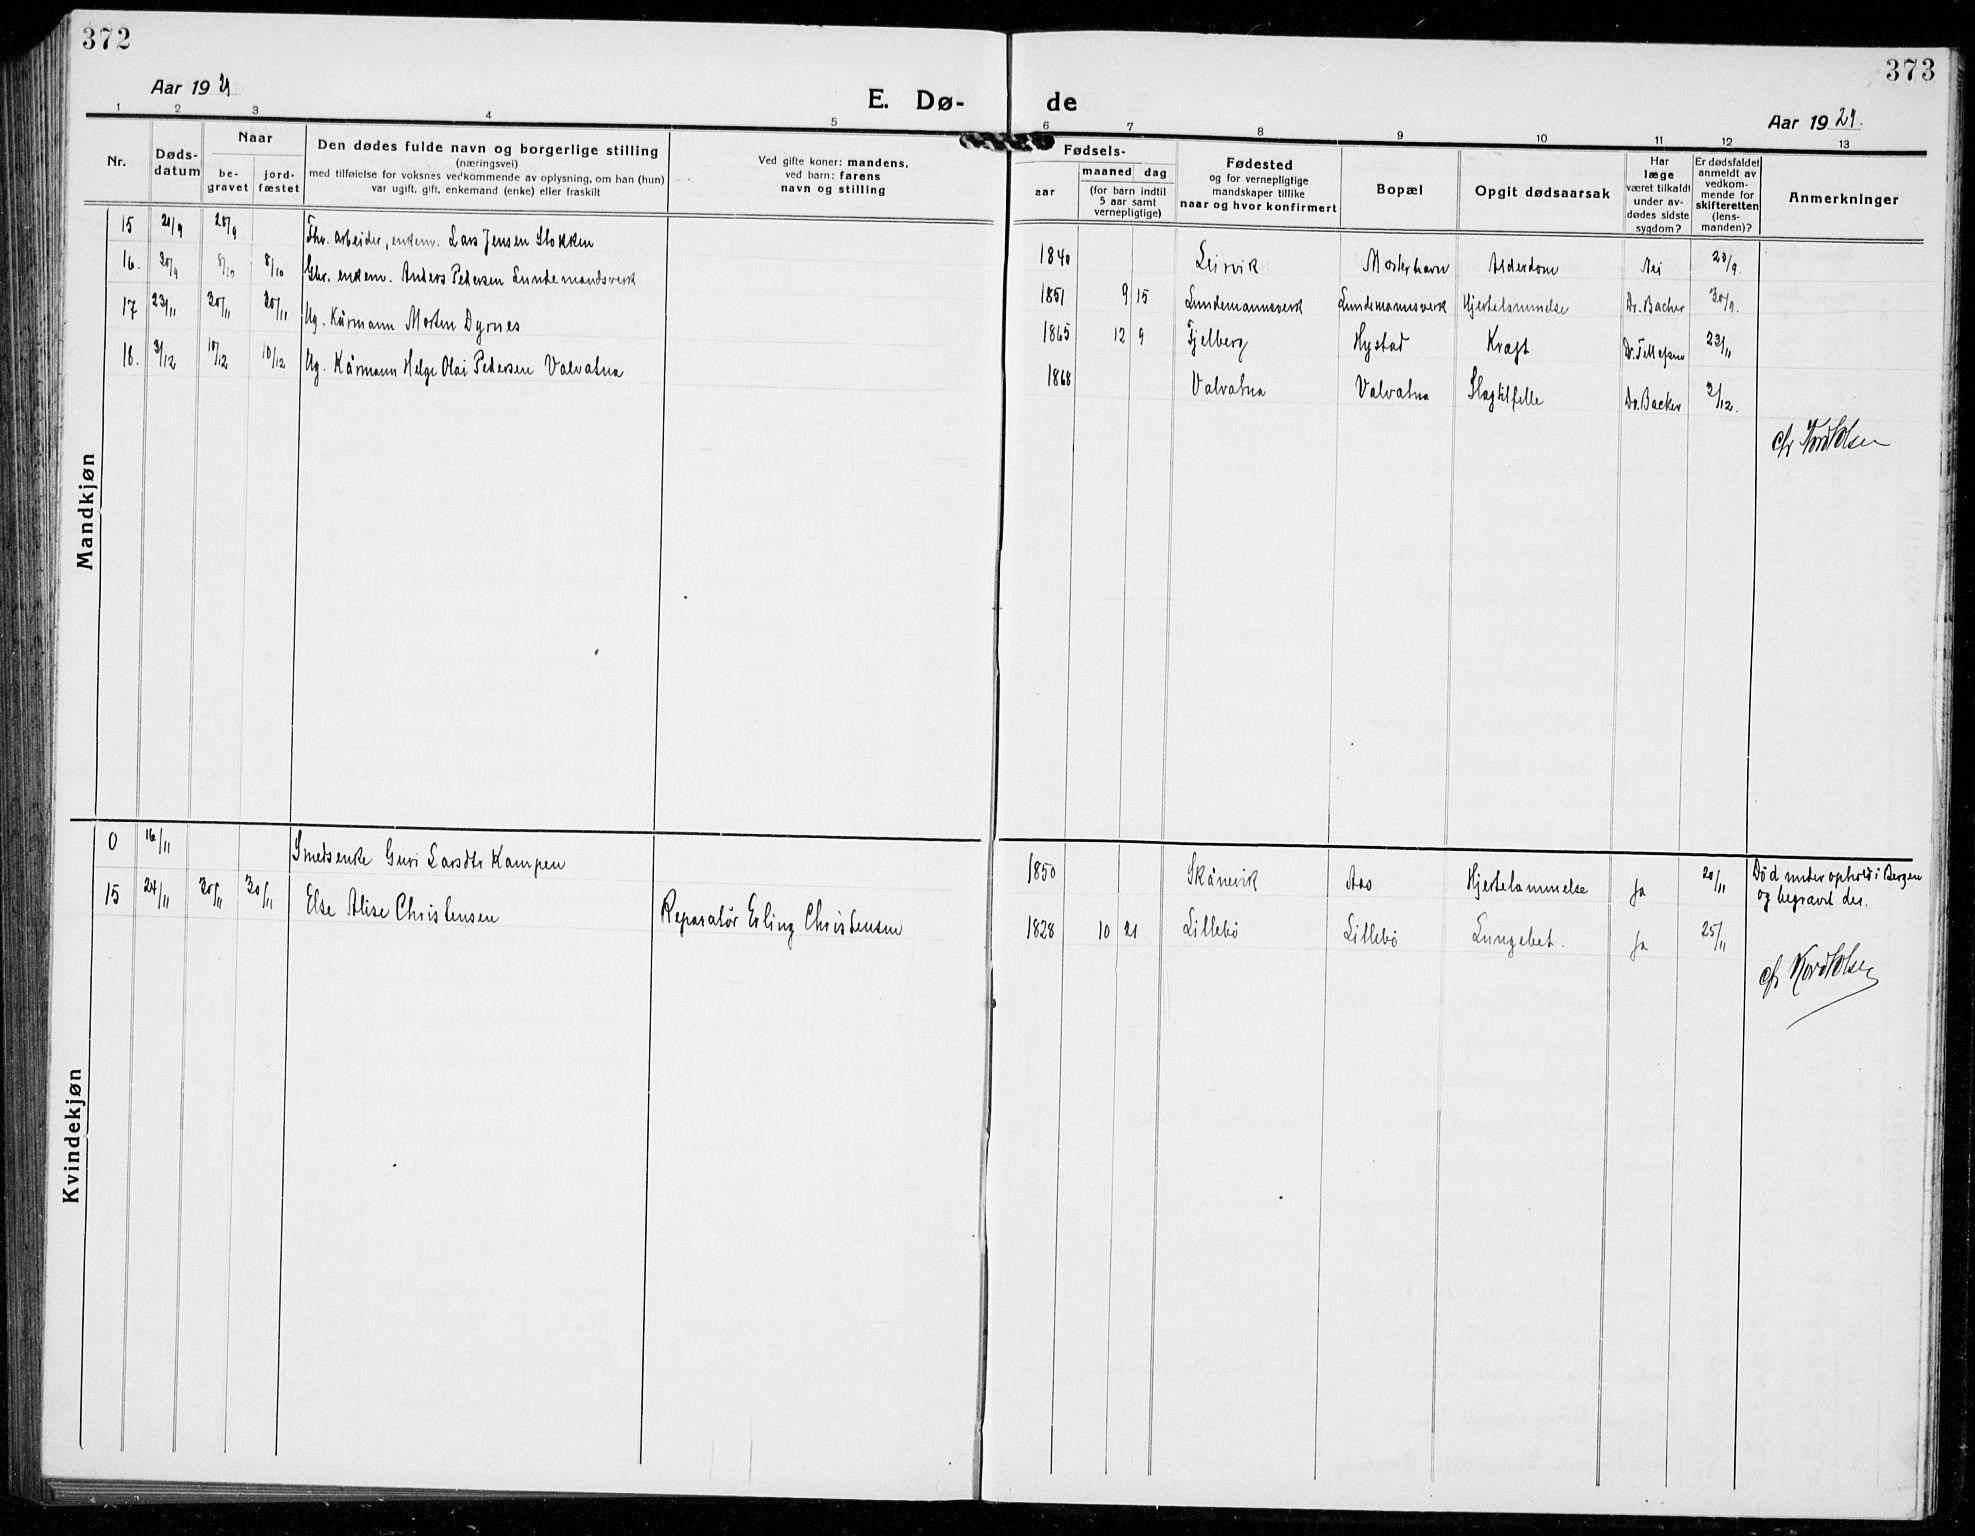 372
Aar 1929
E. Dø-
1 2 3 4 5
Nr.
Døds-
datum
Naar
be-
gravet
jord-
fæstet
Den dødes fulde navn og borgerlige stilling
(næringsvei)
med tilføielse for voksnes vedkommende av oplysning, om han (hun)
var ugift, gift, enkemand (enke) eller fraskilt
Ved gifte koner: mandens,
ved barn: farens
navn og stilling
Mandkjøn
15 21/9 28/9 arbeider, enkem. Lars Jensen Stokken
16. 30/9 8/10 8/10 enkem. Anders Pedersen Lundemandsverk
17 23/11 30/11 30/11 Ug. Kårmann Morten Dyrnes
18. 3/12 10/12 10/12 Ug. Kårmann Helge Olai Pedersen Valvatna
Kvindekjøn
0 16/11 Smedsenke Guri Larsdtr Kampen
15 24/11 30/11 30/11 Else Alise Christensen Reparatør Erling Christensen
373
de
Aar 1929.
6 7 8 9 10 11 12 13
Fødsels-
aar
maaned dag
(for barn indtil
5 aar samt
vernepligtige)
Fødested
og for vernepligtige
mandskaper tillike
naar og hvor konfirmert
Bopæl
Opgit dødsaarsak
Har
læge
været tilkaldt
under av-
dødes sidste
sygdom?
Er dødsfaldet
anmeldt av
vedkom-
mende for
skifteretten
(lens-
manden)?
Anmerkninger
1840 Leirvik Mosterhavn Alderdom Nei 23/9
1851 9 15 Lundemannsverk Lundemannsverk Hjertelammelse Dr. Backer 30/9.
1865 12 9 Fjelberg Hystad Kræft Dr. 23/11
1868 Valvatna Valvatna Slagtilfelle Dr. Backer 3/12.
1850 Skånevik Aas Hjertelammelse Ja 20/11 Død under ophold i Bergen
og begravet der.
1828 10 21 Lillebø Lillebø Lungebet. Ja 25/11